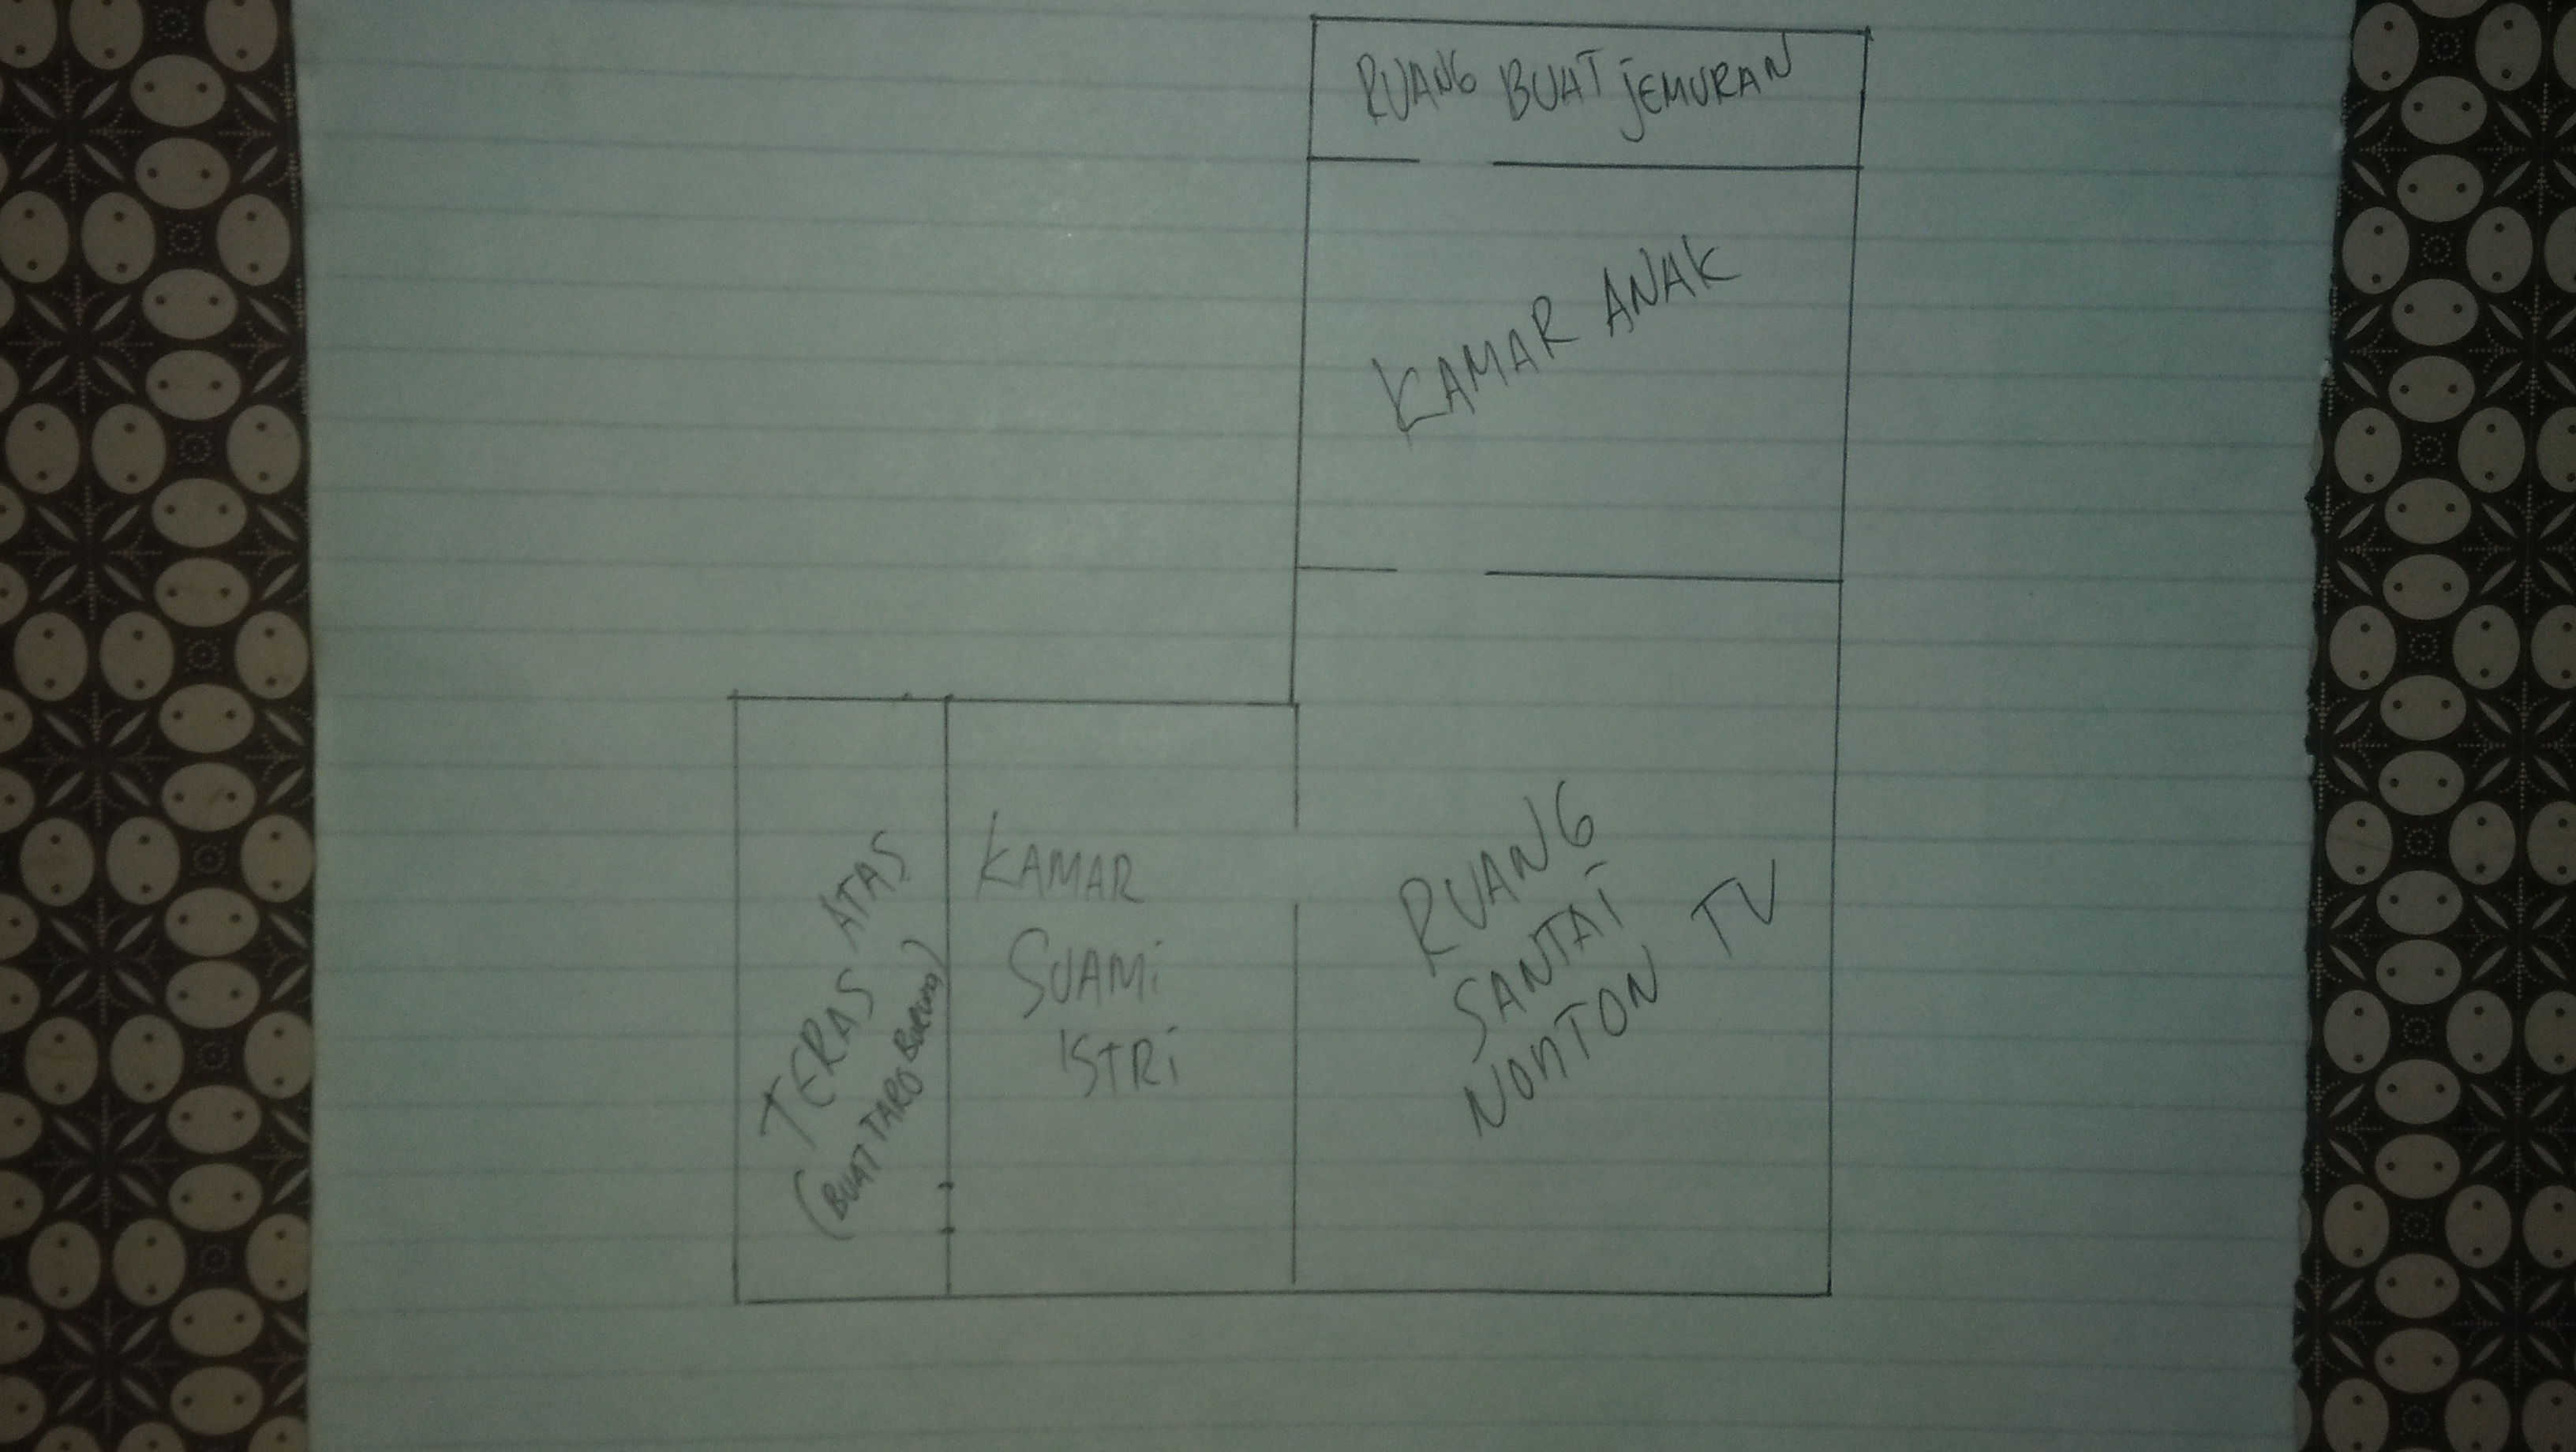 RUANG BUAT JEMURAN
KAMAR ANAK
TERAS ATAS
(BUAT TARO BURUNG)
KAMAR
SUAMI
ISTRI
RUANG
SANTAI
NONTON TV